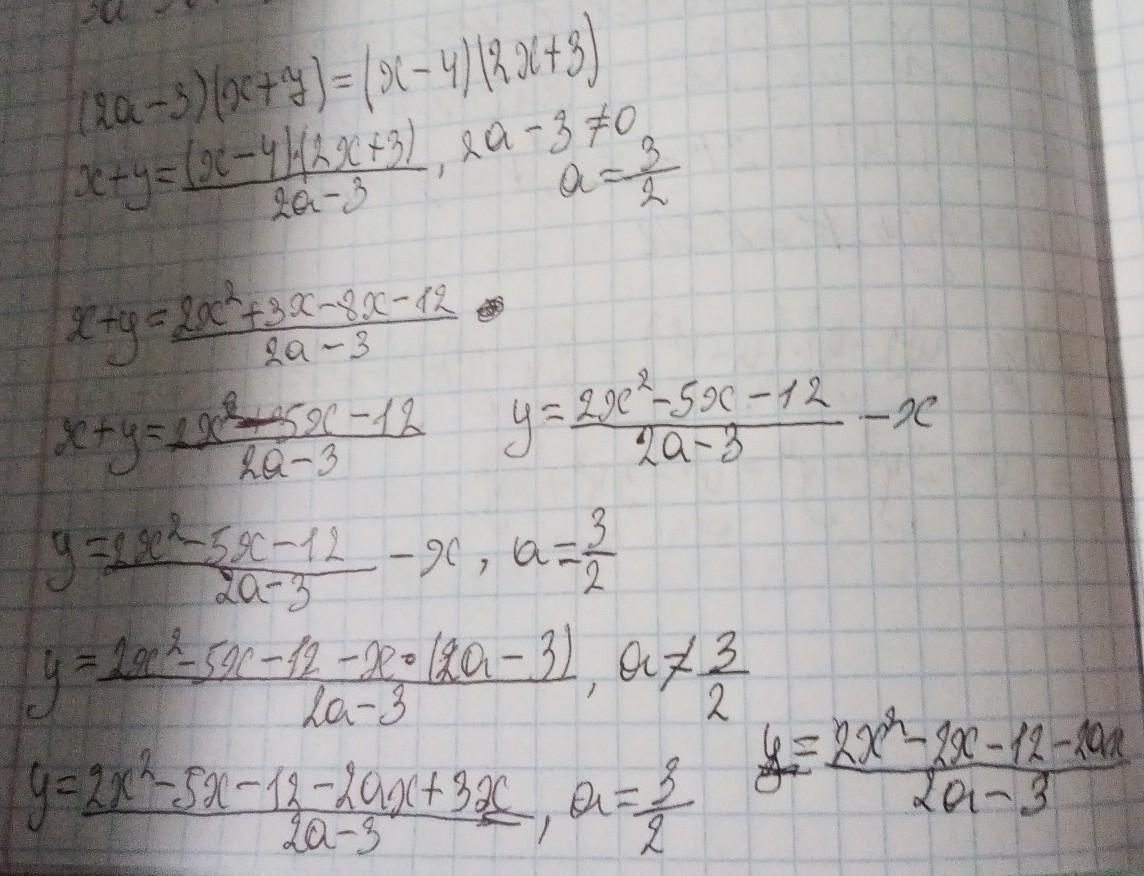 (2a-3)(x+y)=(x-4)(2x+3)
x+y=\frac{(x-4)·(2x+3)}{2a-3}, 2a-3≠0
a=\frac{3}{2}
x+y=\frac{2x²+3x-8x-12}{2a-3}
x+y=\frac{2x²-5x-12}{2a-3} y=\frac{2x²-5x-12}{2a-3}-x
y=\frac{2x²-5x-12}{2a-3}-x, a=\frac{3}{2}
y=\frac{2x²-5x-12-x·(2a-3)}{2a-3}, a≠\frac{3}{2}
y=\frac{2x²-5x-12-2ax+3x}{2a-3}, a=\frac{3}{2}
y=\frac{2x²-2x-12-2ax}{2a-3}